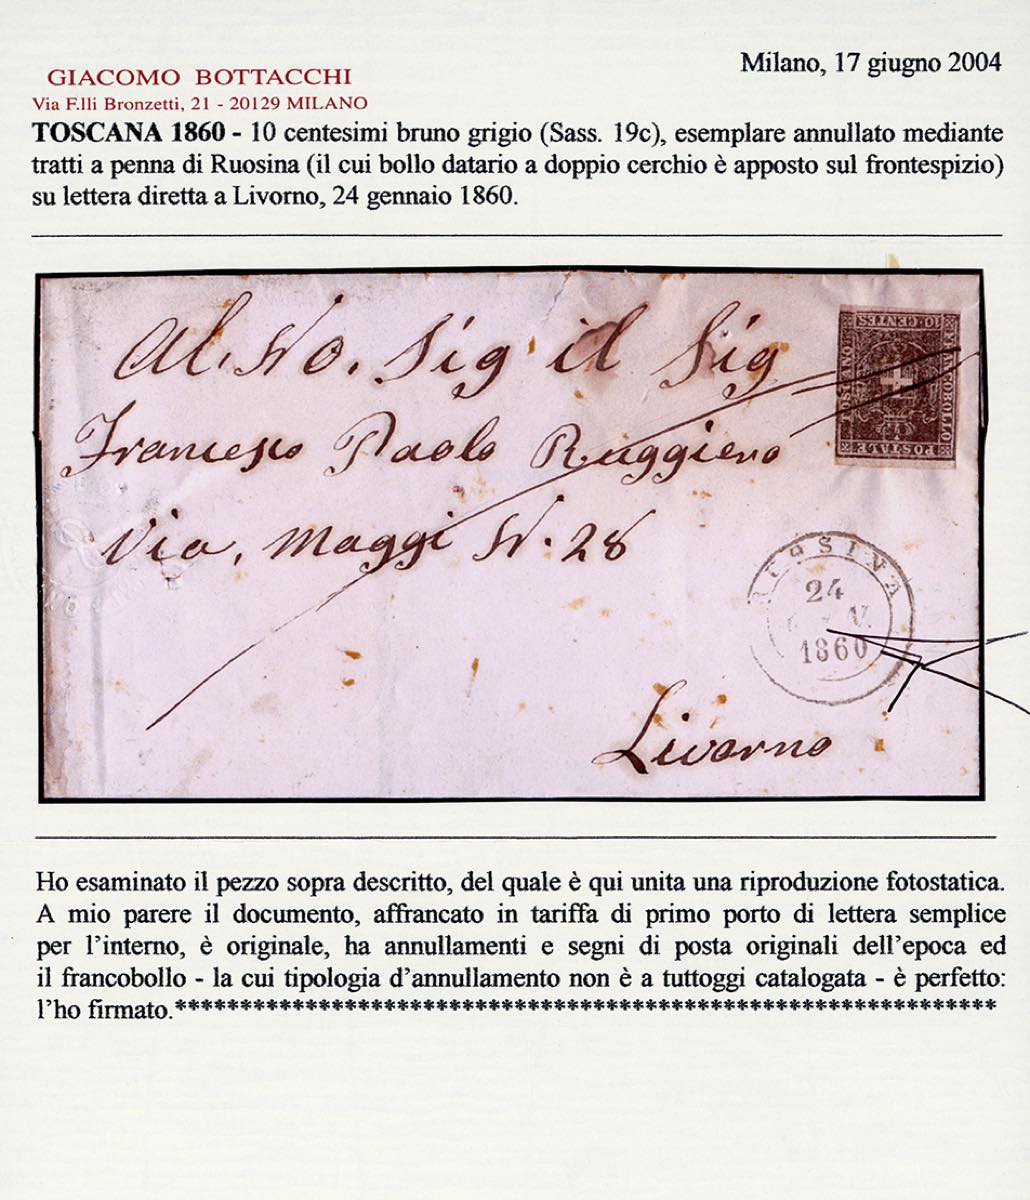 GIACOMO BOTTACCHI
Milano, 17 giugno 2004
Via F.lli Bronzetti, 21 - 20129 MILANO
TOSCANA 1860 - 10 centesimi bruno grigio (Sass. 19c), esemplare annullato mediante
tratti a penna di Ruosina (il cui bollo datario a doppio cerchio è apposto sul frontespizio)
su lettera diretta a Livorno, 24 gennaio 1860.
Al. No. Sig il Sig
Francesco Paolo Ruggiero
Via, Maggi N. 28
Livorno
10 CENTES
FRANCOBOLLO
POSTALE
TOSCANO
RUOSINA
24
1860
Ho esaminato il pezzo sopra descritto, del quale è qui unita una riproduzione fotostatica.
A mio parere il documento, affrancato in tariffa di primo porto di lettera semplice
per l'interno, è originale, ha annullamenti e segni di posta originali dell'epoca ed
il francobollo - la cui tipologia d'annullamento non è a tuttoggi catalogata - è perfetto:
l'ho firmato.***************************************************************